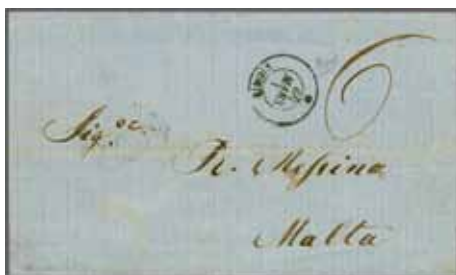 6
Sig.re
R. Messina
Malta